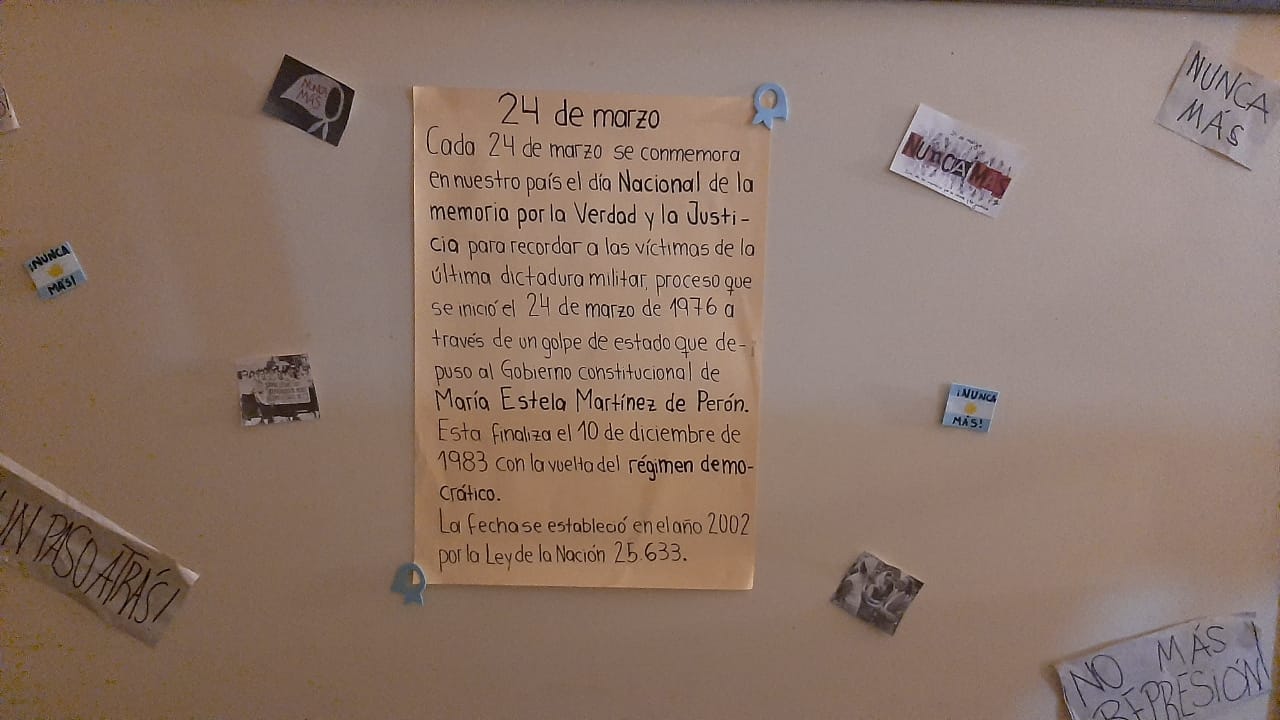 24 de marzo
Cada 24 de marzo se conmemora
en nuestro país el día Nacional de la
memoria por la Verdad y la Justi-
cia para recordar a las víctimas de la
última dictadura militar, proceso que
se inició el 24 de marzo de 1976 a
través de un golpe de estado que de-
puso al Gobierno constitucional de
María Estela Martínez de Perón.
Esta finaliza el 10 de diciembre de
1983 con la vuelta del régimen demo-
crático.
La fecha se estableció en el año 2002
por la Ley de la Nación 25.633.
NUNCA
MÁS
NUNCA MÁS
NUNCA
MÁS
¡NUNCA
MÁS!
¡NUNCA
MÁS!
UN PASO ATRÁS!
NO MÁS
REPRESIÓN!